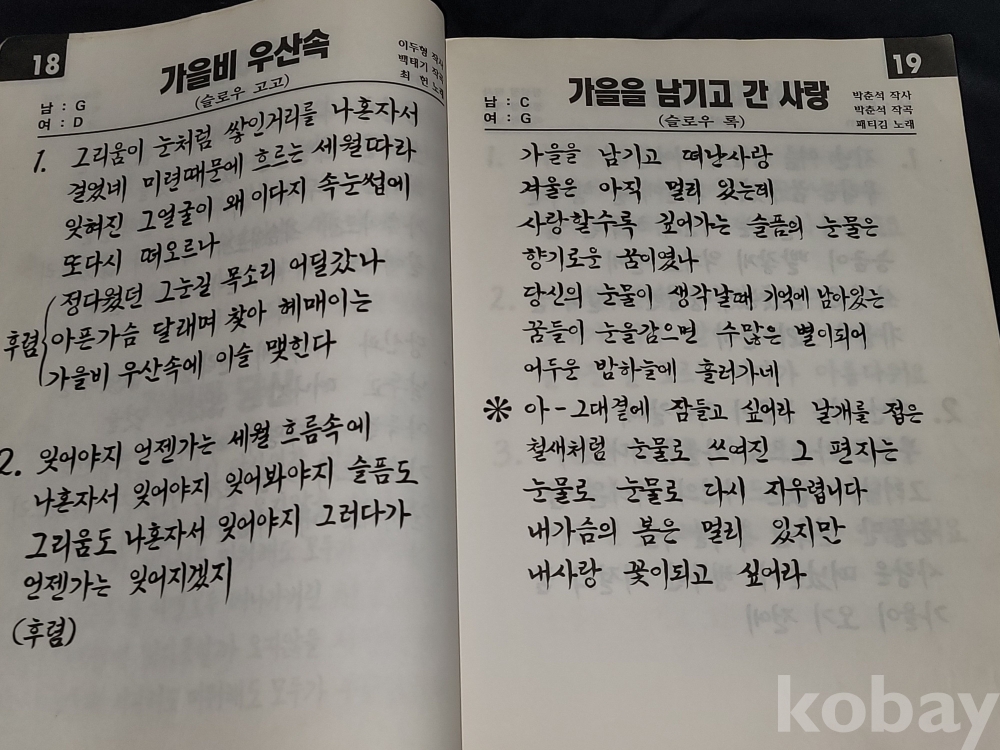 18
가을비 우산속
(슬로우 고고)
이두형 작사
백태기 작곡
최 헌 노래
남 : G
여 : D
1. 그리움이 눈처럼 쌓인거리를 나혼자서
걸었네 미련때문에 흐르는 세월따라
잊혀진 그얼굴이 왜 이다지 속눈썹에
또다시 떠오르나
정다웠던 그눈길 목소리 어딜갔나
후렴 아픈가슴 달래며 찾아 헤매이는
가을비 우산속에 이슬 맺힌다
2. 잊어야지 언젠가는 세월 흐름속에
나혼자서 잊어야지 잊어봐야지 슬픔도
그리움도 나혼자서 잊어야지 그러다가
언젠가는 잊어지겠지
(후렴)
19
가을을 남기고 간 사랑
(슬로우 록)
박춘석 작사
박춘석 작곡
패티김 노래
남 : C
여 : G
가을을 남기고 떠난사랑
겨울은 아직 멀리 있는데
사랑할수록 깊어가는 슬픔의 눈물은
향기로운 꿈이였나
당신의 눈물이 생각날때 기억에 남아있는
꿈들이 눈을감으면 수많은 별이되어
어두운 밤하늘에 흘러가네
* 아-그대곁에 잠들고 싶어라 날개를 접은
철새처럼 눈물로 쓰여진 그 편지는
눈물로 눈물로 다시 지우렵니다
내가슴의 봄은 멀리 있지만
내사랑 꽃이되고 싶어라
kobay